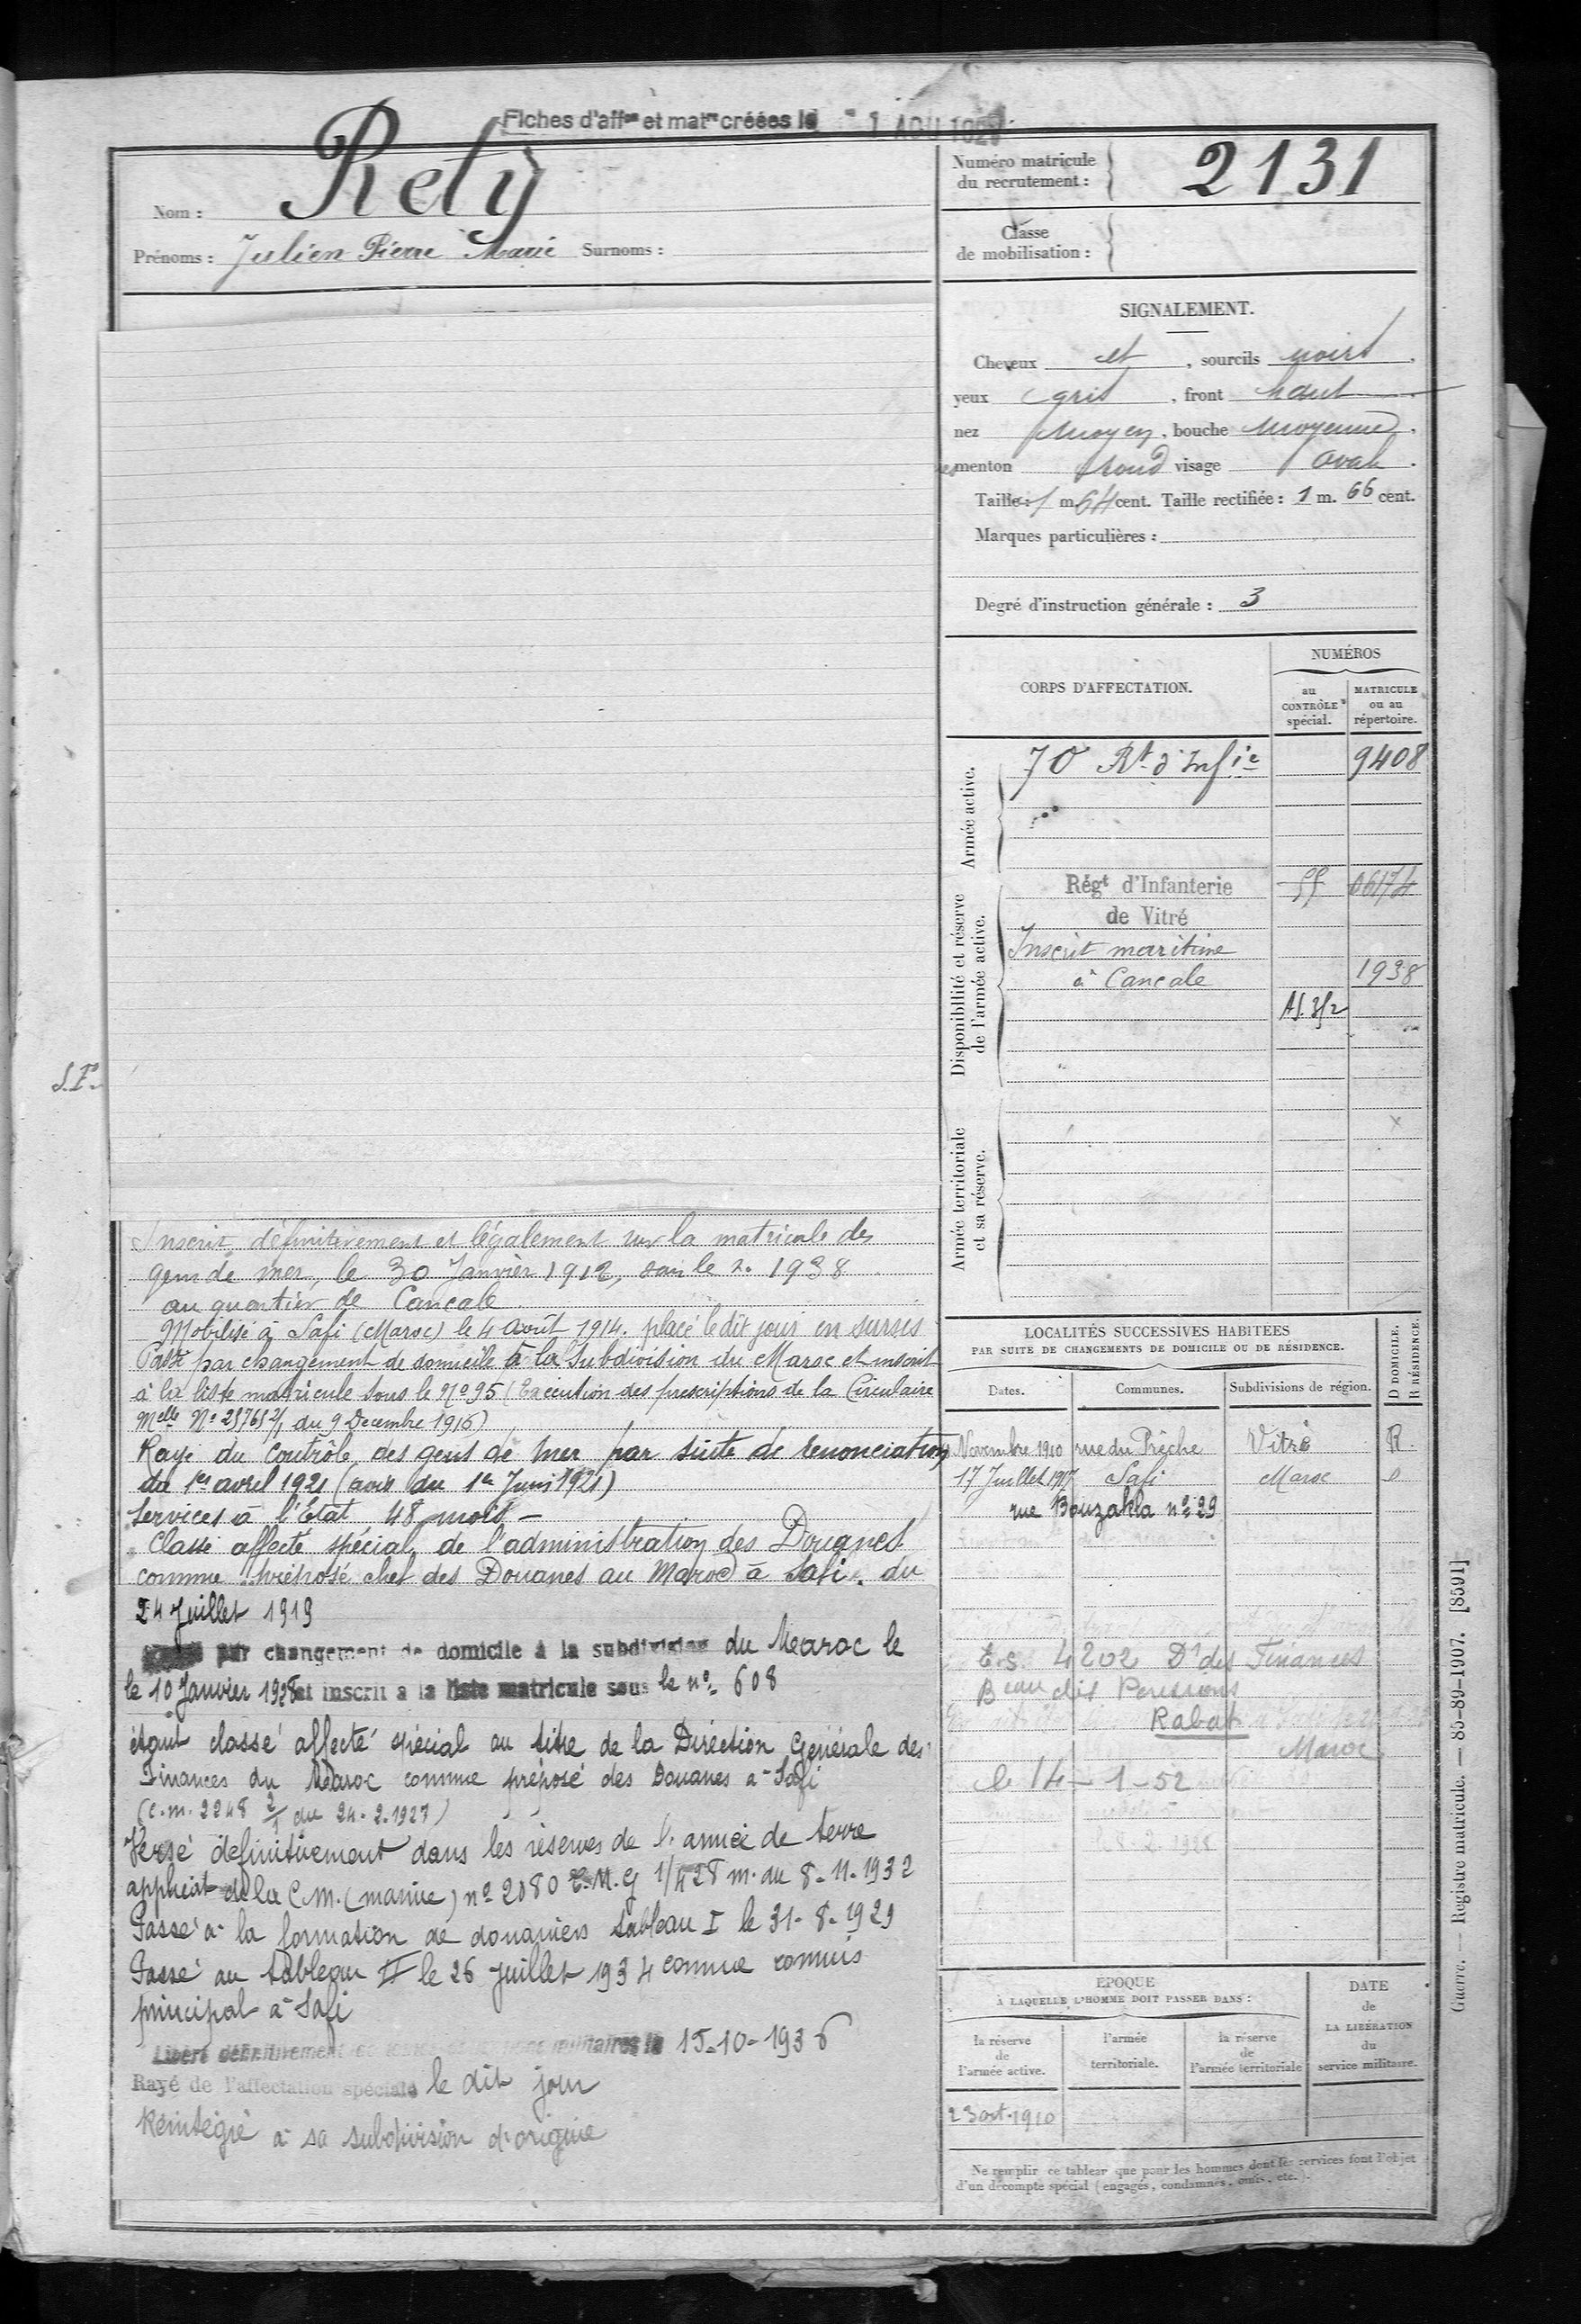 Fiches d'aff^on et mat^re créées le 1 AOU 192
Nom : Rety
Prénoms : Julien Pierre Marie Surnoms :
Numéro matricule du recrutement : 2131
Classe de mobilisation :
SIGNALEMENT.
Cheveux et , sourcils noirs .
yeux gris , front haut .
nez moyen , bouche moyenne ,
menton rond visage ovale .
Taille : 1 m. 64 cent. Taille rectifiée : 1 m. 66 cent.
Marques particulières :
Degré d'instruction générale : 3
CORPS D'AFFECTATION.
NUMÉROS
au CONTRÔLE spécial.
MATRICULE ou au répertoire.
Armée active.
70 R^t d'Inf^ie 9408
Disponibilité et réserve de l'armée active.
Rég^t d'Infanterie
de Vitré
Inscrit maritime
à Cancale 1938
Armée territoriale et sa réserve.
Inscrit définitivement et légalement sur la matricule des
gens de mer, le 30 Janvier 1912, sous le n. 1938
au quartier de Cancale
Mobilisé à Safi (Maroc) le 4 août 1914. placé le dit jour en sursis
Passé par changement de domicile à la Subdivision du Maroc et inscrit
à la liste matricule sous le N° 95 (Exécution des prescriptions de la Circulaire
M^elle N° 25765 2/1 du 9 Décembre 1916)
Rayé du contrôle des gens de mer par suite de renonciation
du 1er avril 1921 (avis du 1er Juin 1921)
Services à l'Etat 48 mois -
Classé affecté spécial de l'administration des Douanes
comme préposé chef des Douanes au Maroc à Safi. du
24 Juillet 1919
par changement de domicile à la subdivision du Maroc le
le 10 Janvier 1928 et inscrit à la liste matricule sous le n° 608
étant classé affecté spécial au titre de la Direction Générale des
Finances du Maroc comme préposé des Douanes à Safi
(C.M. 2248 2/1 du 24.2.1927)
Versé définitivement dans les réserves de l'armée de terre
applicat de la C.M. (marine) n° 2080 E.M.G 1/428 m. du 8-11-1932
Passé à la formation de douaniers tableau I le 31-8-1929
Passé au tableau II le 26 Juillet 1934 comme commis
principal à Safi
Libéré définitivement militaires le 15-10-1936
Rayé de l'affectation spéciale le dit jour
Réintégré à sa subdivision d'origine
LOCALITÉS SUCCESSIVES HABITÉES
PAR SUITE DE CHANGEMENTS DE DOMICILE OU DE RÉSIDENCE.
D DOMICILE. R RÉSIDENCE.
Dates. Communes. Subdivisions de région.
Novembre 1910 rue du Prêche Vitré R.
17 Juillet 1917 Safi Maroc D
rue Bouzakla n° 29
E.S. 4202 D^n des Finances
Rabat
Maroc
le 14-1-52
le 8.2.1928
ÉPOQUE
À LAQUELLE L'HOMME DOIT PASSER DANS :
la réserve de l'armée active.
l'armée territoriale.
la réserve de l'armée territoriale
DATE de LA LIBÉRATION du service militaire.
23 oct. 1910
Ne remplir ce tableau que pour les hommes dont les services font l'objet
d'un décompte spécial (engagés, condamnés, omis, etc.).
Guerre. — Registre matricule. — 85-89-1907. [8591]